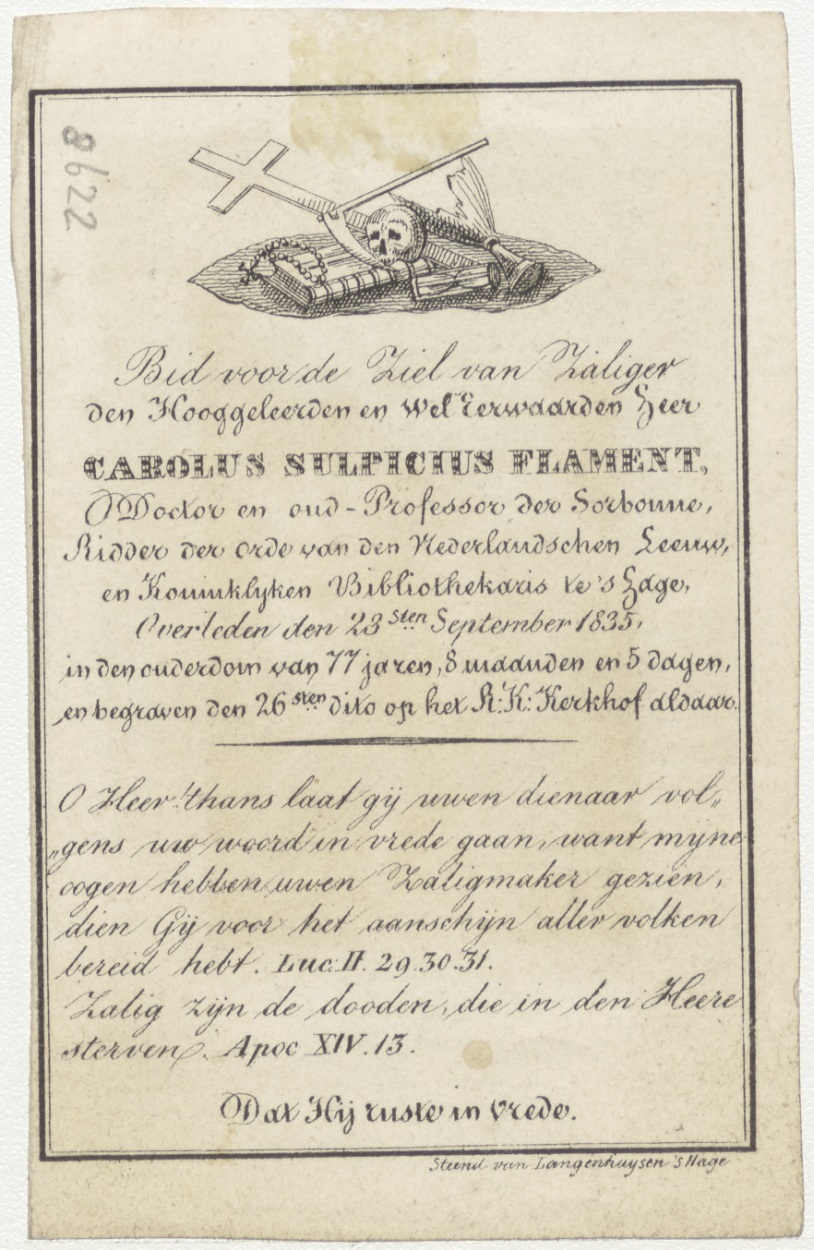 8622
Bid voor de Ziel van Zaliger
den Hooggeleerden en Wel Eerwaarden Heer
CAROLUS SULPICIUS FLAMENT,
Doctor en oud-Professor der Sorbonne,
Ridder der orde van den Nederlandschen Leeuw,
en Koninklyken Bibliothekaris te 's Hage,
Overleden den 23sten September 1835,
in den ouderdom van 77 jaren, 8 maanden en 5 dagen,
en begraven den 26sten dito op het R: K: Kerkhof aldaar.
O Heer! thans laat gij uwen dienaar vol„
„gens uw woord in vrede gaan, want myne
oogen hebben uwen Zaligmaker gezien,
dien Gij voor het aanschijn aller volken
bereid hebt. Luc. II. 29.30.31.
Zalig zijn de dooden, die in den Heere
sterven. Apoc XIV. 13.
Dat Hij ruste in vrede.
Steend van Langenhuysen 's Hage